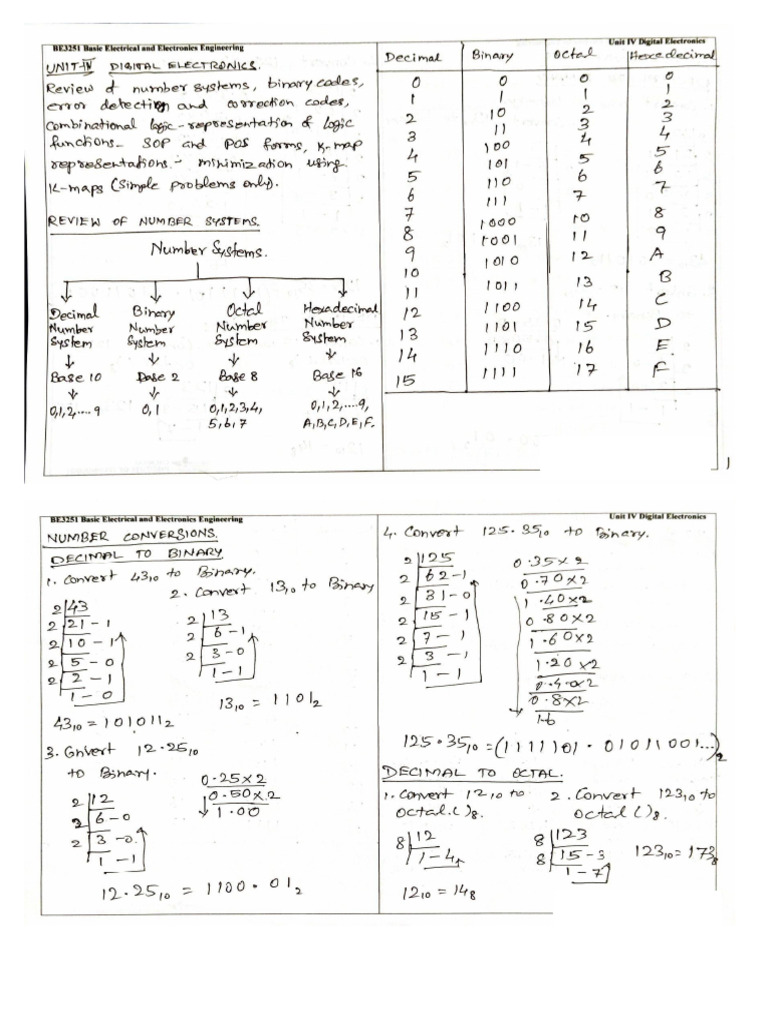 BE3251 Basic Electrical and Electronics Engineering
UNIT-IV DIGITAL ELECTRONICS.
Review of number systems, binary codes,
error detection and correction codes,
Combinational logic-representation of logic
functions- SOP and POS forms, K-map
representations:- minimization using
K-maps (Simple problems only).
REVIEW OF NUMBER SYSTEMS.
Number Systems.
Decimal Binary Octal Hexadecimal
Number Number Number Number
System System System System
Base 10 Base 2 Base 8 Base 16
0,1,2,....9 0,1 0,1,2,3,4, 0,1,2,....9,
5,6,7 A,B,C,D,E,F.
Unit IV Digital Electronics
Decimal Binary Octal Hexadecimal
0 0 0 0
1 1 1 1
2 10 2 2
3 11 3 3
4 100 4 4
5 101 5 5
6 110 6 6
7 111 7 7
8 1000 10 8
9 1001 11 9
10 1010 12 A
11 1011 13 B
12 1100 14 C
13 1101 15 D
14 1110 16 E
15 1111 17 F
1
BE3251 Basic Electrical and Electronics Engineering
NUMBER CONVERSIONS.
DECIMAL TO BINARY
1. Convert 43₁₀ to Binary.
2 43
2 21 - 1
2 10 - 1
2 5 - 0
2 2 - 1
1 - 0
43₁₀ = 101011₂
2. Convert 13₁₀ to Binary
2 13
2 6 - 1
2 3 - 0
1 - 1
13₁₀ = 1101₂
3. Convert 12.25₁₀
to Binary.
2 12
2 6 - 0
2 3 - 0
1 - 1
0.25 x 2
0.50 x 2
1.00
12.25₁₀ = 1100.01₂
Unit IV Digital Electronics
4. Convert 125.35₁₀ to Binary.
2 125
2 62 - 1
2 31 - 0
2 15 - 1
2 7 - 1
2 3 - 1
1 - 1
0.35 x 2
0.70 x 2
1.40 x 2
0.80 x 2
1.60 x 2
1.20 x 2
0.40 x 2
0.8 x 2
1.6
125.35₁₀ = (1111101.01011001...)₂
DECIMAL TO OCTAL.
1. Convert 12₁₀ to
Octal.( )₈.
8 12
1 - 4
12₁₀ = 14₈
2. Convert 123₁₀ to
Octal ( )₈.
8 123
8 15 - 3
1 - 7
123₁₀ = 173₈